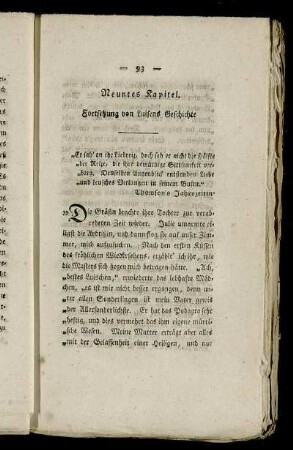 — 93 —
Neuntes Kapitel.
Fortsetzung von Luisens Geschichte
„Er sah an ihr Liebreiz, doch sah er nicht die Hälfte
„der Reize, die ihre demüthige Sittsamkeit ver-
„barg. Denselben Augenblick entstanden Liebe
„und keusches Verlangen in seinem Busen.“
Thomson's Jahrszeiten
„Die Gräfin brachte ihre Tochter zur verab-
redeten Zeit wieder. Julie umarmte ei-
ligst die Ihrigen, und dann flog sie auf unser Zim-
mer, mich aufzusuchen. Nach den ersten Küssen
des fröhlichen Wiedersehens, erzählt' ich ihr, wie
die Masters sich gegen mich betragen hätte. „Ach,
„bestes Luischen,“ erwiederte das liebholde Mäd-
chen, „es ist mir nicht besser ergangen, denn un-
„ter allen Sonderlingen ist mein Vater gewiß
„der Allersonderlichste. Er hat das Podagra sehr
„heftig, und dies vermehrt das ihm eigene mürri-
„sche Wesen. Meine Mutter erträgt aber alles
„mit der Gelassenheit einer Heiligen, und nur